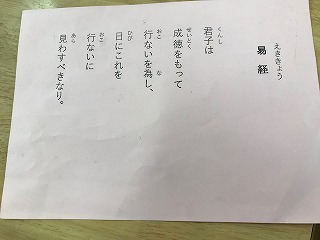 易経
えききょう
君子は
くんし
成徳をもって
せいとく
行ないを為し、
おこ な
日にこれを
ひび
行ないに
おこ
見わすべきなり。
あら